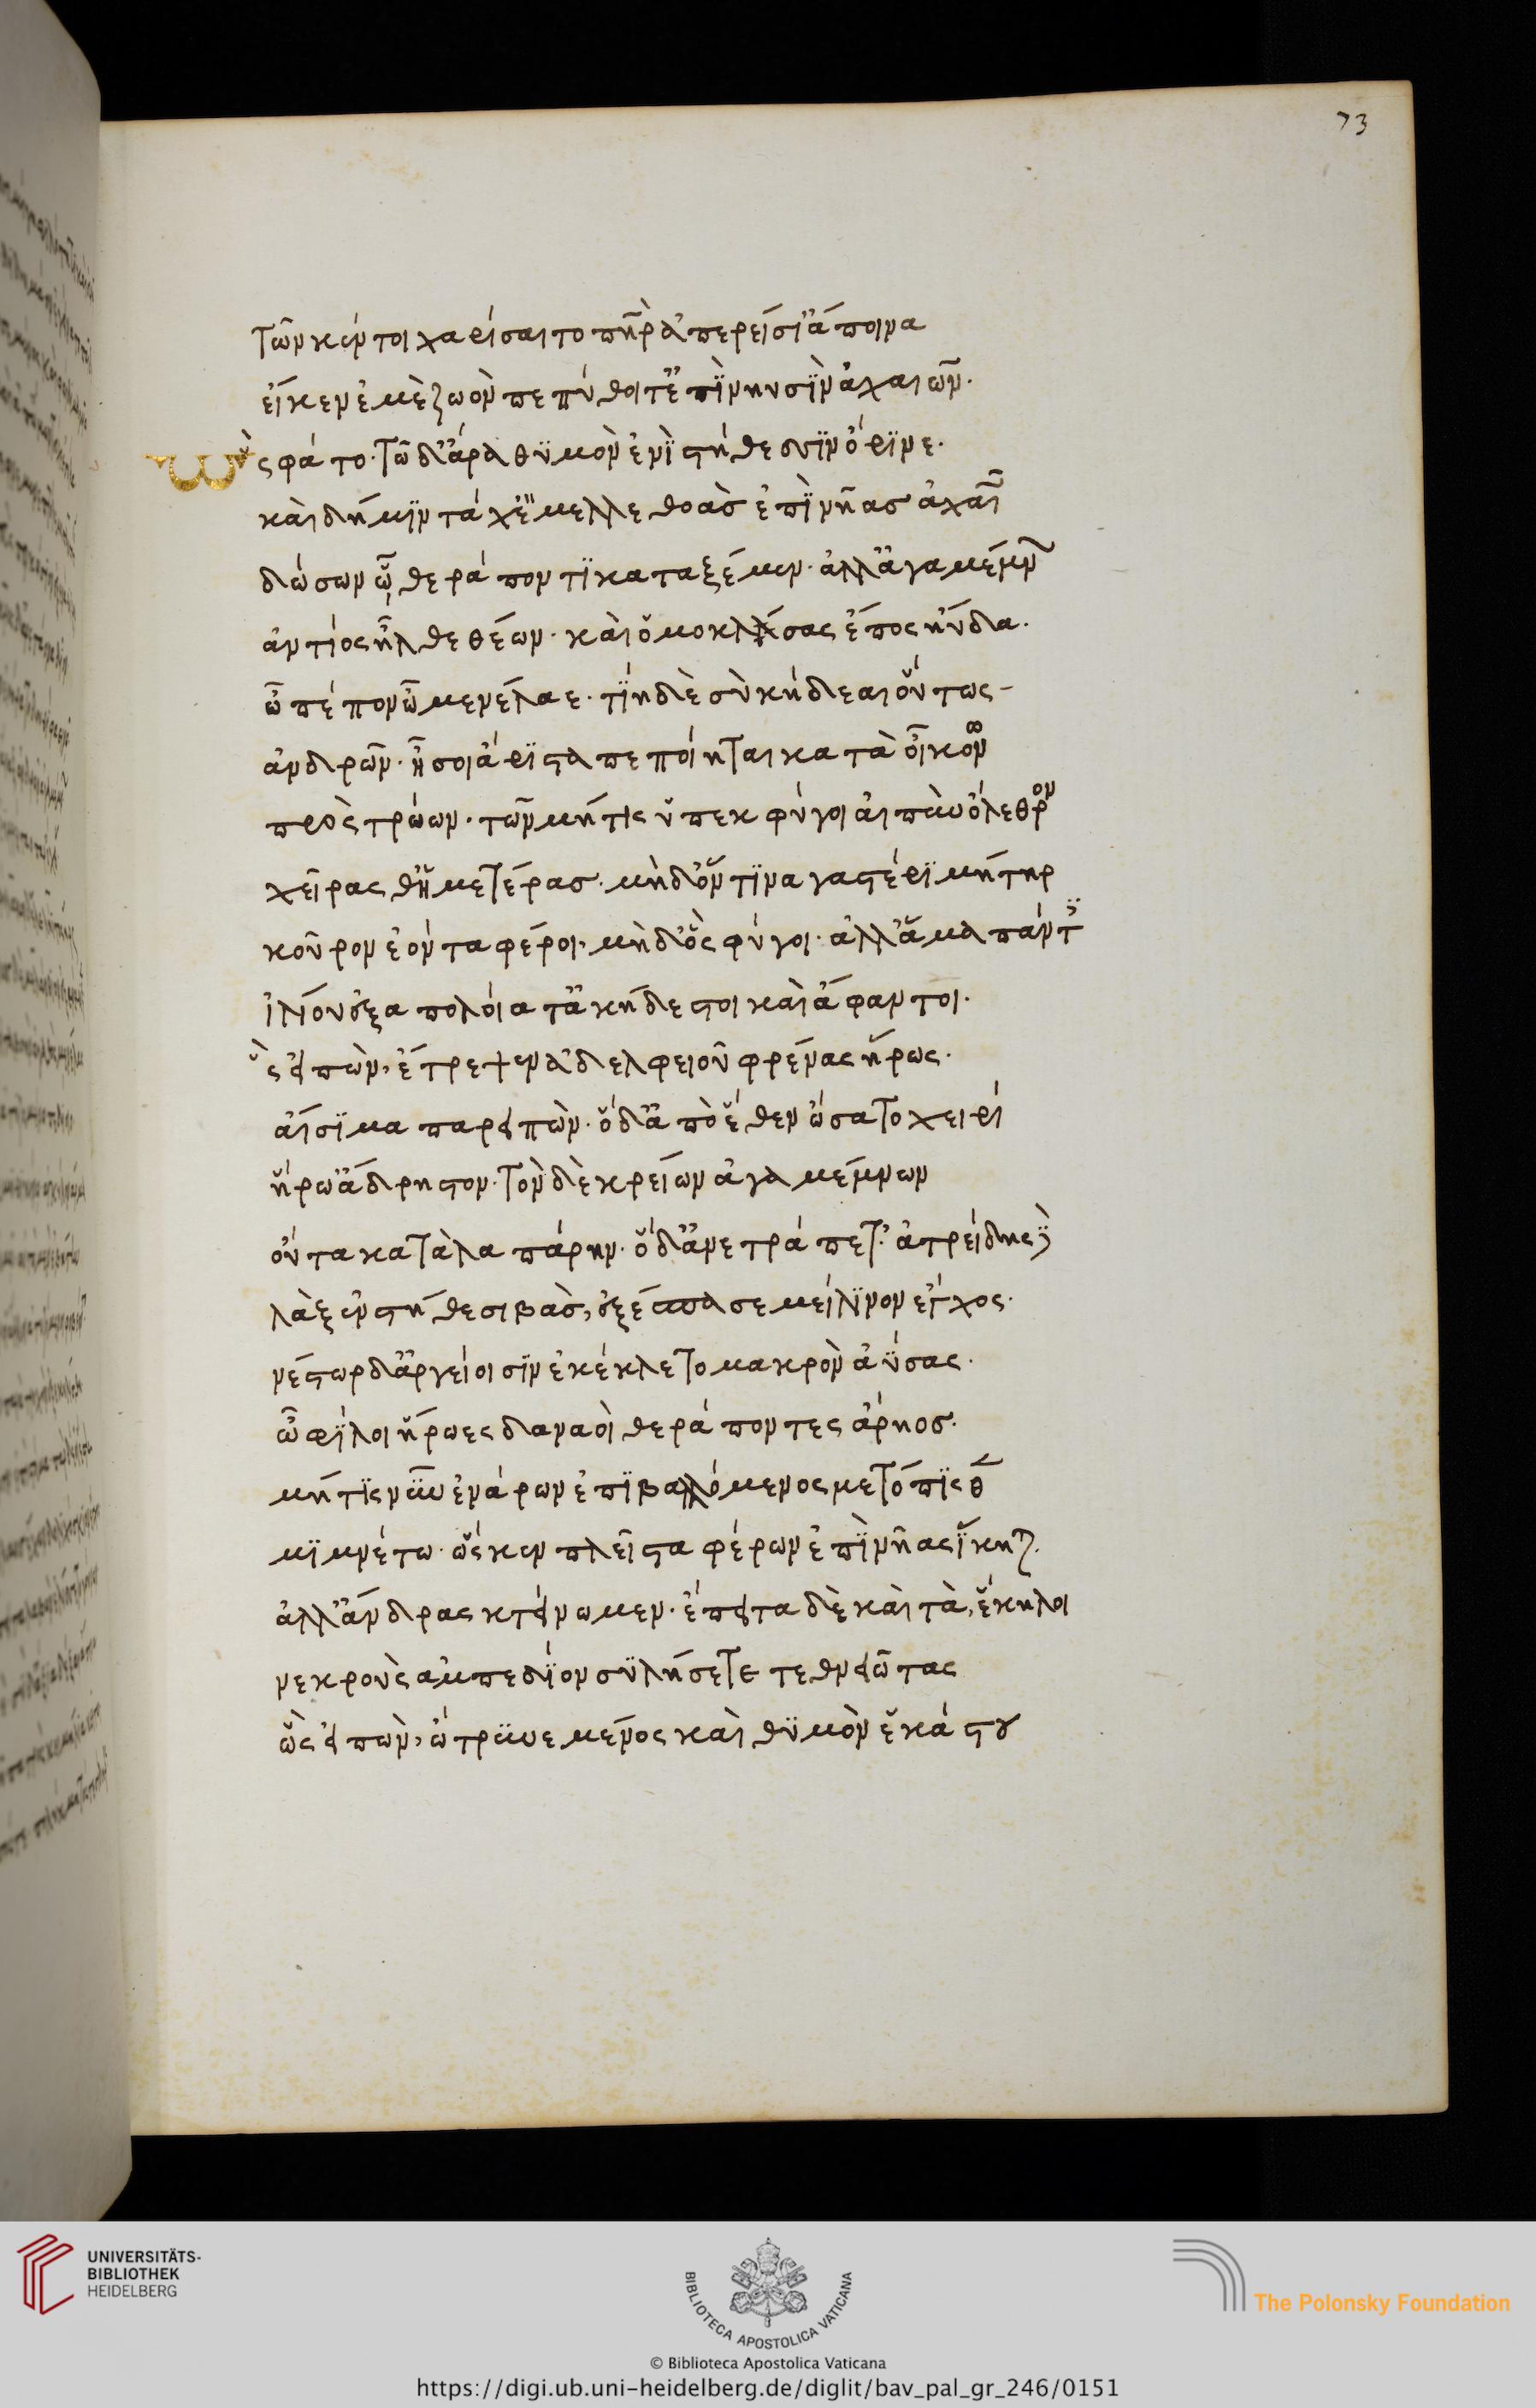 τῶν κέν τοι χαρίσαιτο πηρ̀ ἀπερείσι' ἄποινα
εἴ κεν ἐμὲ ζωὸν πεπύθοιτ' ἐπὶ νηυσὶν ἀχαιῶν.
Ὣς φάτο. τῶ δ' ἄρα θυμὸν ἐνὶ στήθεσσιν ὄρινε.
καὶ δή μιν τάχ' ἔμελλε θοὰς ἐπὶ νῆας ἀχαιῶν
δώσων ᾧ θεράποντι καταξέμεν. ἀλλ' ἀγαμέμνων
ἀντίος ἦλθε θέων. καὶ ὁμοκλήσας ἔπος ηὔδα.
ὦ πέπον ὦ μενέλαε. τίη δὲ σὺ κήδεαι οὕτως
ἀνδρῶν. ἦ σοι ἄριστα πεποίηται κατὰ οἶκον
πρὸς τρώων. τῶν μήτις ὑπεκφύγοι αἰπὺν ὄλεθρον
χεῖρας θ' ἡμετέρας. μὴδ' ὅν τινα γαστέρι μήτηρ
κοῦρον ἐόντα φέροι. μὴδ' ὃς φύγοι. ἀλλ' ἅμα πάντες
ἰλίου ἐξαπολοίατ' ἀκήδεστοι καὶ ἄφαντοι.
ὣς εἰπὼν, ἔτρεψεν ἀδελφειοῦ φρένας ἥρως.
αἴσιμα παρειπών. ὁ δ' ἀπὸ ἕθεν ὤσατο χειρί
ἥρω' ἄδρηστον. τὸν δὲ κρείων ἀγαμέμνων
οὖτα κατὰ λαπάρην. ὁ δ' ἀνετράπετ' ἀτρείδης δὲ
λὰξ ἐν στήθεσι βὰς, ἐξέσπασε μείλινον ἔγχος.
νέστωρ δ' ἀργείοισιν ἐκέκλετο μακρὸν ἀΰσας.
ὦ φίλοι ἥρωες δαναοὶ θεράποντες ἄρηος.
μή τις νῦν ἐνάρων ἐπιβαλλόμενος μετόπισθε
μιμνέτω. ὥς κεν πλεῖστα φέρων ἐπὶ νῆας ἵκηται.
ἀλλ' ἄνδρας κτείνωμεν. ἔπειτα δὲ καὶ τὰ, ἕκηλοι
νεκροὺς αμπεδίον συλήσετε τεθνειῶτας
ὣς εἰπὼν, ὤτρυνε μένος καὶ θυμὸν ἑκάστου
73
UNIVERSITÄTS-
BIBLIOTHEK
HEIDELBERG
BIBLIOTECA APOSTOLICA VATICANA
© Biblioteca Apostolica Vaticana
The Polonsky Foundation
https://digi.ub.uni-heidelberg.de/diglit/bav_pal_gr_246/0151